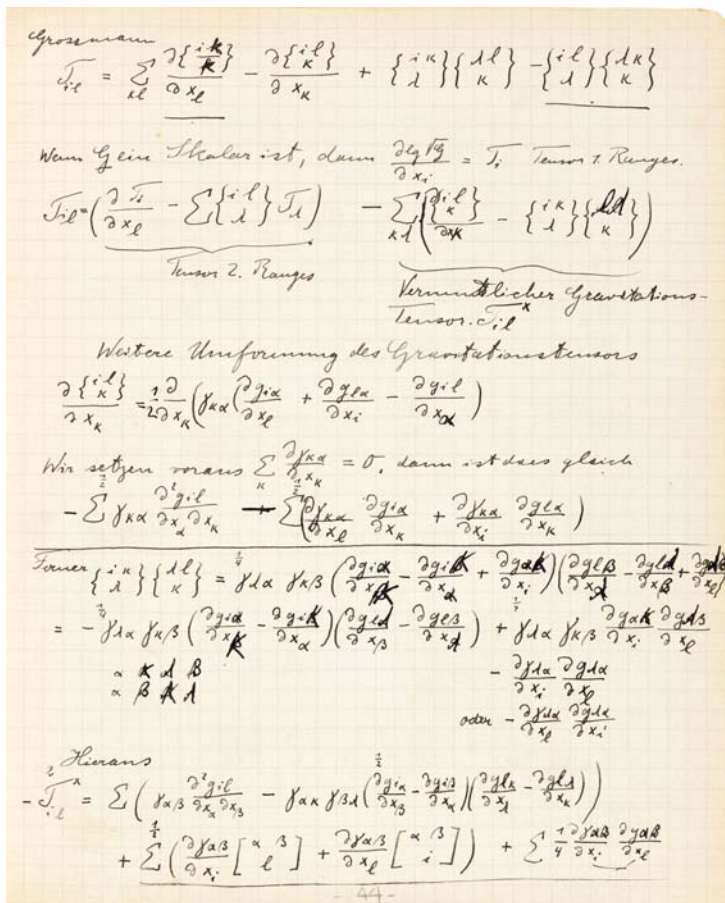 Grossmann
T_{il} = \sum_{κl} \frac{∂{iκ \atop κ}}{∂x_l} - \frac{∂{il \atop κ}}{∂x_κ} + {iκ \atop λ}{λl \atop κ} - {il \atop λ}{λκ \atop κ}
Wenn G ein Skalar ist, dann \frac{∂ lg √G}{∂x_i} = T_i Tensor 1. Ranges.
T_{il} = (\frac{∂T_i}{∂x_l} - \sum {il \atop λ} T_λ) - \sum_{κλ} (\frac{∂{il \atop κ}}{∂x_κ} - {iκ \atop λ}{lλ \atop κ})
Tensor 2. Ranges
Vermutlicher Gravitations-
Tensor. T_{il}^x
Weitere Umformung des Gravitationstensors
\frac{∂{il \atop κ}}{∂x_κ} = \frac{1}{2} \frac{∂}{∂x_κ} (γ_{κα} (\frac{∂g_{iα}}{∂x_l} + \frac{∂g_{lα}}{∂x_i} - \frac{∂g_{il}}{∂x_α})
Wir setzen voraus \sum_κ \frac{∂γ_{κα}}{∂x_κ} = 0, dann ist dies gleich
- \frac{1}{2} \sum γ_{κα} \frac{∂^2 g_{il}}{∂x_α ∂x_κ} - \frac{1}{2} \sum (\frac{∂γ_{κα}}{∂x_l} \frac{∂g_{iα}}{∂x_κ} + \frac{∂γ_{κα}}{∂x_i} \frac{∂g_{lα}}{∂x_κ})
Ferner {iκ \atop λ}{λl \atop κ} = \frac{1}{4} γ_{λα} γ_{κβ} (\frac{∂g_{iα}}{∂x_κ} - \frac{∂g_{iκ}}{∂x_α} + \frac{∂g_{ακ}}{∂x_i})(\frac{∂g_{lβ}}{∂x_λ} - \frac{∂g_{lλ}}{∂x_β} + \frac{∂g_{λβ}}{∂x_l})
= - \frac{1}{4} γ_{λα} γ_{κβ} (\frac{∂g_{iα}}{∂x_κ} - \frac{∂g_{iκ}}{∂x_α})(\frac{∂g_{lλ}}{∂x_β} - \frac{∂g_{lβ}}{∂x_λ}) + \frac{1}{4} γ_{λα} γ_{κβ} \frac{∂g_{ακ}}{∂x_i} \frac{∂g_{λβ}}{∂x_l}
α κ λ β
α β κ λ
- \frac{∂γ_{λα}}{∂x_i} \frac{∂g_{λα}}{∂x_l}
oder - \frac{∂γ_{λα}}{∂x_l} \frac{∂g_{λα}}{∂x_i}
Hieraus
- 2 T_{il}^x = \sum (γ_{αβ} \frac{∂^2 g_{il}}{∂x_α ∂x_β} - \frac{1}{2} γ_{ακ} γ_{βλ} (\frac{∂g_{iα}}{∂x_β} - \frac{∂g_{iβ}}{∂x_α})(\frac{∂g_{lκ}}{∂x_λ} - \frac{∂g_{lλ}}{∂x_κ}))
+ \frac{1}{2} \sum (\frac{∂γ_{αβ}}{∂x_i} [α β \atop l] + \frac{∂γ_{αβ}}{∂x_l} [α β \atop i]) + \sum \frac{1}{4} \frac{∂γ_{αβ}}{∂x_i} \frac{∂g_{αβ}}{∂x_l}
- 44 -